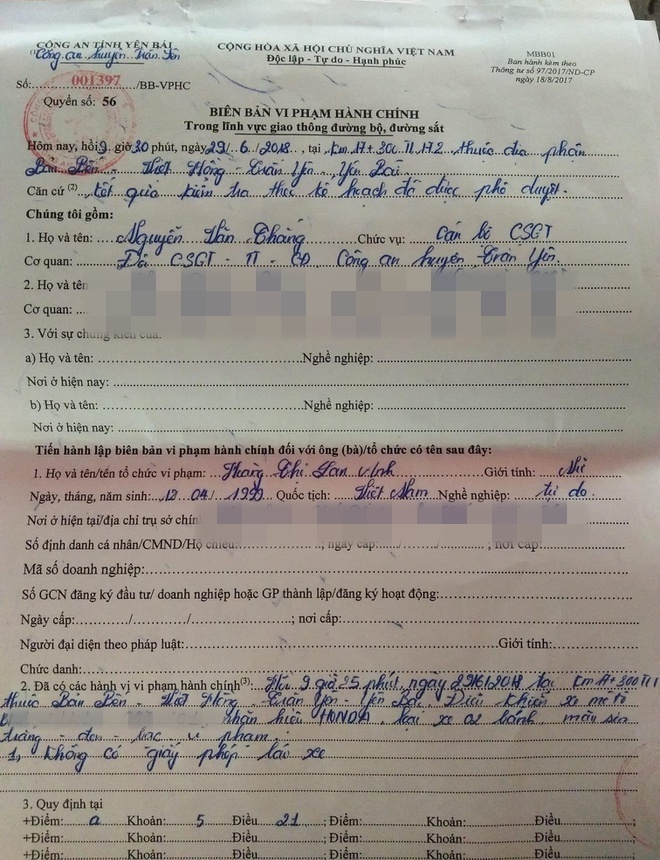 CÔNG AN TỈNH YÊN BÁI
(1) Công an huyện Trấn Yên
CỘNG HÒA XÃ HỘI CHỦ NGHĨA VIỆT NAM
Độc lập - Tự do - Hạnh phúc
MBB01
Ban hành kèm theo
Thông tư số 97/2017/NĐ-CP
ngày 18/8/2017
Số: 001397 /BB-VPHC
Quyển số: 56
BIÊN BẢN VI PHẠM HÀNH CHÍNH
Trong lĩnh vực giao thông đường bộ, đường sắt
Hôm nay, hồi 9 giờ 30 phút, ngày 29/6/2018, tại Km 17+300 TL172 thuộc địa phận
Bản Bến - Việt Hồng - Trấn Yên - Yên Bái
Căn cứ (2) Kết quả kiểm tra theo kế hoạch đã được phê duyệt.
Chúng tôi gồm:
1. Họ và tên: Nguyễn Văn Thắng Chức vụ: Cán bộ CSGT
Cơ quan: Đội CSGT - TT - CĐ Công an huyện Trấn Yên.
2. Họ và tên
Cơ quan:
3. Với sự chứng kiến của:
a) Họ và tên: Nghề nghiệp:
Nơi ở hiện nay:
b) Họ và tên: Nghề nghiệp:
Nơi ở hiện nay:
Tiến hành lập biên bản vi phạm hành chính đối với ông (bà)/tổ chức có tên sau đây:
1. Họ và tên/tên tổ chức vi phạm: Hoàng Thị Lan Vinh Giới tính: Nữ
Ngày, tháng, năm sinh: 12/04/1999 Quốc tịch: Việt Nam Nghề nghiệp: tự do.
Nơi ở hiện tại/địa chỉ trụ sở chính
Số định danh cá nhân/CMND/Hộ chiếu: ; ngày cấp: / / ; nơi cấp:
Mã số doanh nghiệp:
Số GCN đăng ký đầu tư/ doanh nghiệp hoặc GP thành lập/đăng ký hoạt động:
Ngày cấp: / / ; nơi cấp:
Người đại diện theo pháp luật: Giới tính:
Chức danh:
2. Đã có các hành vị vi phạm hành chính(3): Hồi 9 giờ 25 phút, ngày 29/6/2018 tại Km 17+300 TL1
thuộc Bản Bến - Việt Hồng - Trấn Yên - Yên Bái. Điều khiển xe mô tô
nhãn hiệu HONDA, loại xe 02 bánh màu sơn
trắng - đen - bạc vi phạm:
1, Không có giấy phép lái xe
3. Quy định tại
+Điểm: a Khoản: 5 Điều 21 ; Điểm: Khoản: Điều
+Điểm: Khoản: Điều ; Điểm: Khoản: Điều
+Điểm: Khoản: Điều ; Điểm: Khoản: Điều